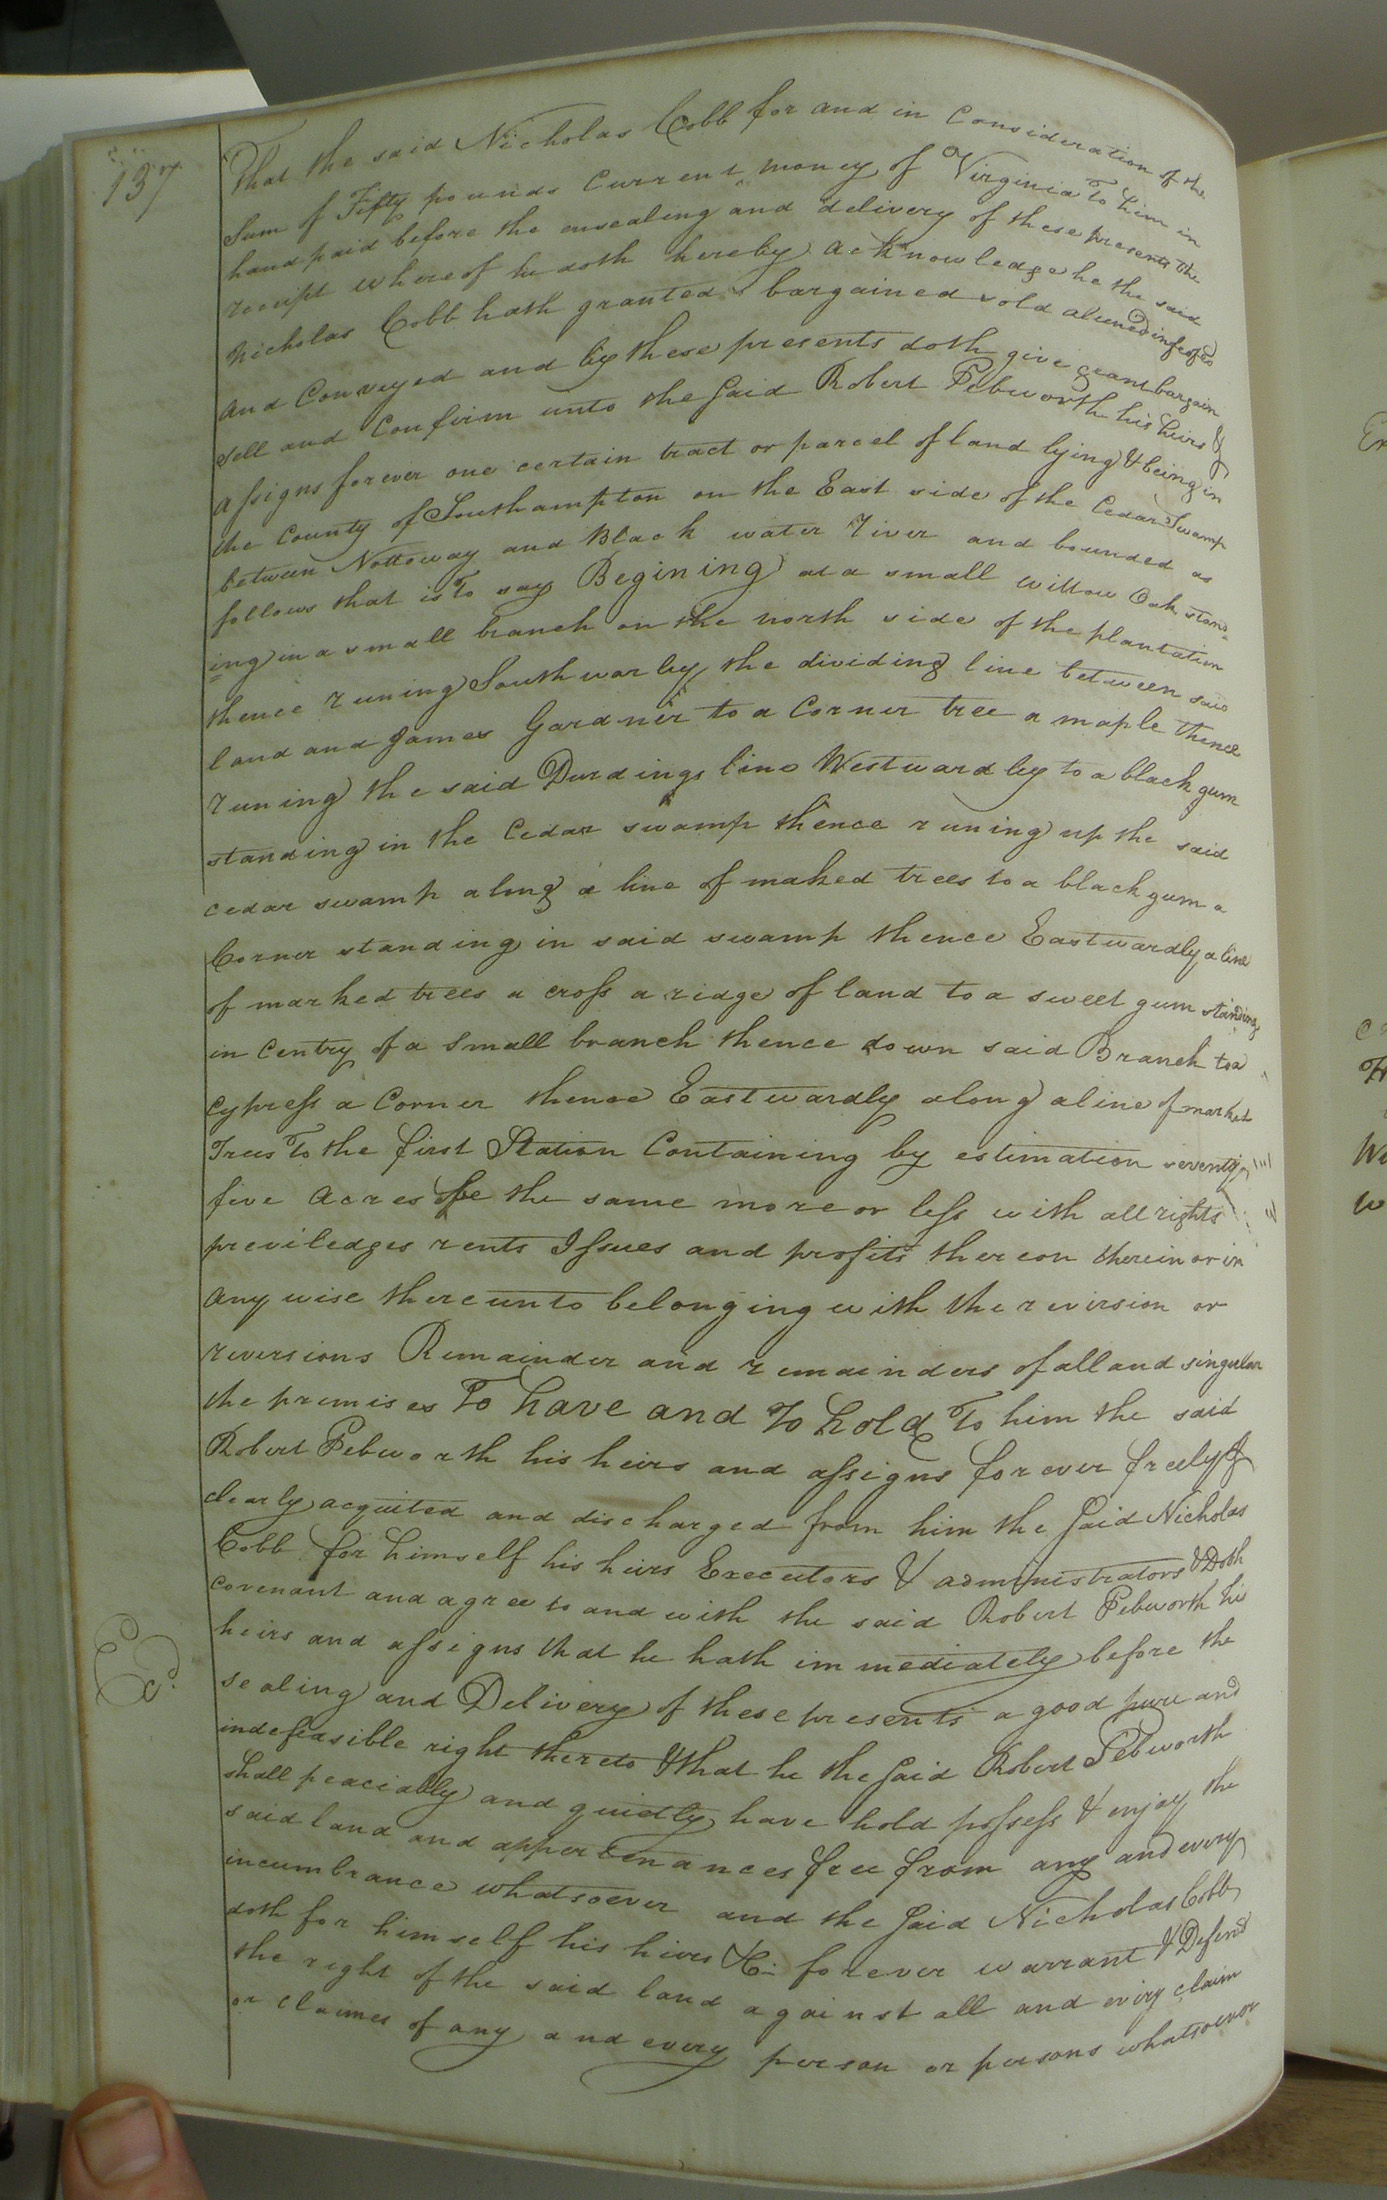 137
That the said Nicholas Cobb for and in Consideration of the
Sum of Fifty pounds Current money of Virginia To him in
hand paid before the ensealing and delivery of these presents the
receipt whereof he doth hereby acknowledge he the said
Nicholas Cobb hath granted bargained sold aliened infeofed
and Conveyed and by these presents doth give grant bargain
sell and Confirm unto the said Robert Pebworth his heirs &
assigns forever one certain tract or parcel of land lying & being in
the County of Southampton on the East side of the Cedar Swamp
between Nottoway and Black water River and bounded as
follows that is To say Begining at a small willow Oak stand=
=ing in a small branch on the north side of the plantation
thence runing Southwarly the dividing line between said
land and James Gardner to a Corner tree a maple thence
runing the said Durdings line Westwardly to a black gum
standing in the Cedar swamp thence runing up the said
cedar swamp along a line of maked trees to a black gum a
Corner standing in said swamp thence Eastwardly a line
of marked trees a cross a ridge of land to a sweet gum standing
in Centry of a Small branch thence down said Branch to a
Cypress a Corner thence Eastwardly along a line of market
Trees To the first Station Containing by estimation seventy
five acres be the same more or less with all rights
previledges rents Issues and profits thereon therein or in
any wise thereunto belonging with the reversion or
reversions Remainder and remainders of all and singular
the premises To have and To hold To him the said
Robert Pebworth his heirs and assigns for ever freely &
clearly acquited and discharged from him the said Nicholas
Cobb for himself his heirs Executors & administrators & Doth
covenant and agree to and with the said Robert Pebworth his
heirs and assigns that he hath immediately before the
sealing and Delivery of these presents a good pure and
indefeasible right thereto & that he the said Robert Pebworth
shall peaciably and quietly have hold possess & enjoy the
said land and appertenances free from any and every
incumbrance whatsoever and the said Nicholas Cobb
doth for himself his hires &c forever warrant & Defend
the right of the said land against all and every claim
or claimes of any and every person or persons whatsoever